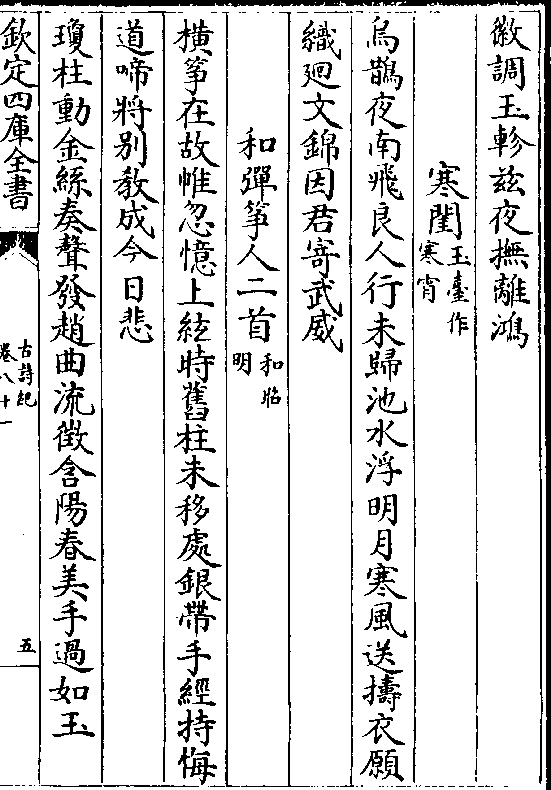 徽調玉軫茲夜撫離鴻
寒閨玉臺作寒宵
烏鵲夜南飛良人行未歸池水浮明月寒風送擣衣願
織廻文錦因君寄武威
和彈箏人二首和昭明
橫箏在故帷忽憶上絃時舊柱未移處銀帶手經持悔
道啼將别教成今日悲
瓊柱動金絲秦聲發趙曲流徵含陽春美手過如玉
欽定四庫全書
古詩紀
卷八十一
五